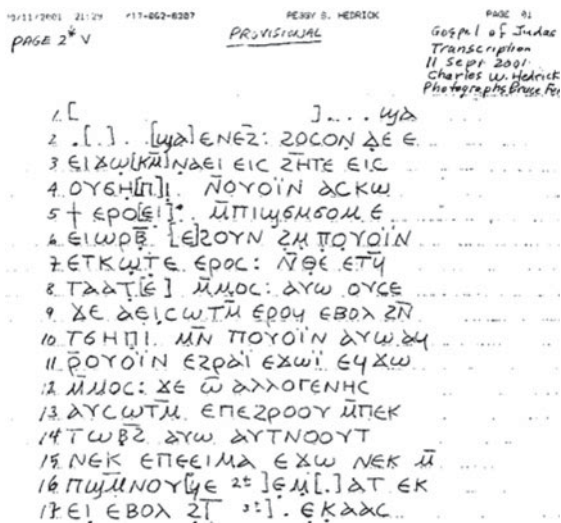 09/11/2001 21:29 417-862-8207 PEGGY S. HEDRICK PAGE 01
PAGE 2* V
PROVISIONAL
Gospel of Judas
Transcription
11 Sept 2001
Charles W. Hedrick
Photographs Bruce Fer
1. [ ].... ϣⲁ
2 .[..]. [ϣⲁ]ⲉⲛⲉϩ̄: ϩⲟⲥⲟⲛ ⲇⲉ ⲉ
3 ⲉⲓϫⲱ[ⲕⲙ̄]ⲛⲁⲉⲓ ⲉⲓⲥ ϩⲏⲏⲧⲉ ⲉⲓⲥ
4 ⲟⲩϭⲏ[ⲡ]ⲓ. ⲛ̄ⲟⲩⲟⲓ̈ⲛ ⲁⲥⲕⲱ
5 ϯ ⲉⲣⲟ[ⲉⲓ]*. ⲙ̄ⲡⲓϣϭⲙϭⲟⲙ ⲉ
6 ⲉⲓⲱⲣⲃ̄ [ⲉ]ϩⲟⲩⲛ ϩⲙ ⲡⲟⲩⲟⲓ̈ⲛ
7 ⲉⲧⲕⲱⲧⲉ ⲉⲣⲟⲥ: ⲛ̄ⲑⲉ ⲉⲧϥ̄
8 ⲧⲁⲁⲧ[ⲉ] ⲙ̄ⲙⲟⲥ: ⲁⲩⲱ ⲟⲩⲥⲉ
9 ϫⲉ ⲁⲉⲓⲥⲱⲧⲙ̄ ⲉⲣⲟϥ ⲉⲃⲟⲗ ϩⲛ̄
10 ⲧϭⲏⲡⲓ. ⲙⲛ̄ ⲡⲟⲩⲟⲓ̈ⲛ ⲁⲩⲱ ⲁϥ
11 ⲣ̄ⲟⲩⲟⲓ̈ⲛ ⲉϩⲣⲁⲓ̈ ⲉϫⲱⲓ̈ ⲉϥϫⲱ
12 ⲙ̄ⲙⲟⲥ: ϫⲉ ⲱ̄ ⲁⲗⲗⲟⲅⲉⲛⲏⲥ
13 ⲁⲩⲥⲱⲧⲙ̄ ⲉⲡⲉϩⲣⲟⲟⲩ ⲙ̄ⲡⲉⲕ
14 ⲧⲱⲃϩ̄ ⲁⲩⲱ ⲁⲩⲧⲛⲟⲟⲩⲧ
15 ⲛⲉⲕ ⲉⲡⲉⲉⲓⲙⲁ ⲉϫⲱ ⲛⲉⲕ ⲙ̄
16 ⲡϣⲙ̄ⲛⲟⲩ[ϥⲉ 2±]ⲉⲙ[.]ⲁⲧ ⲉⲕ
17 ⲉⲓ ⲉⲃⲟⲗ ϩ[ 3±]. ⲉⲕⲁⲁⲥ